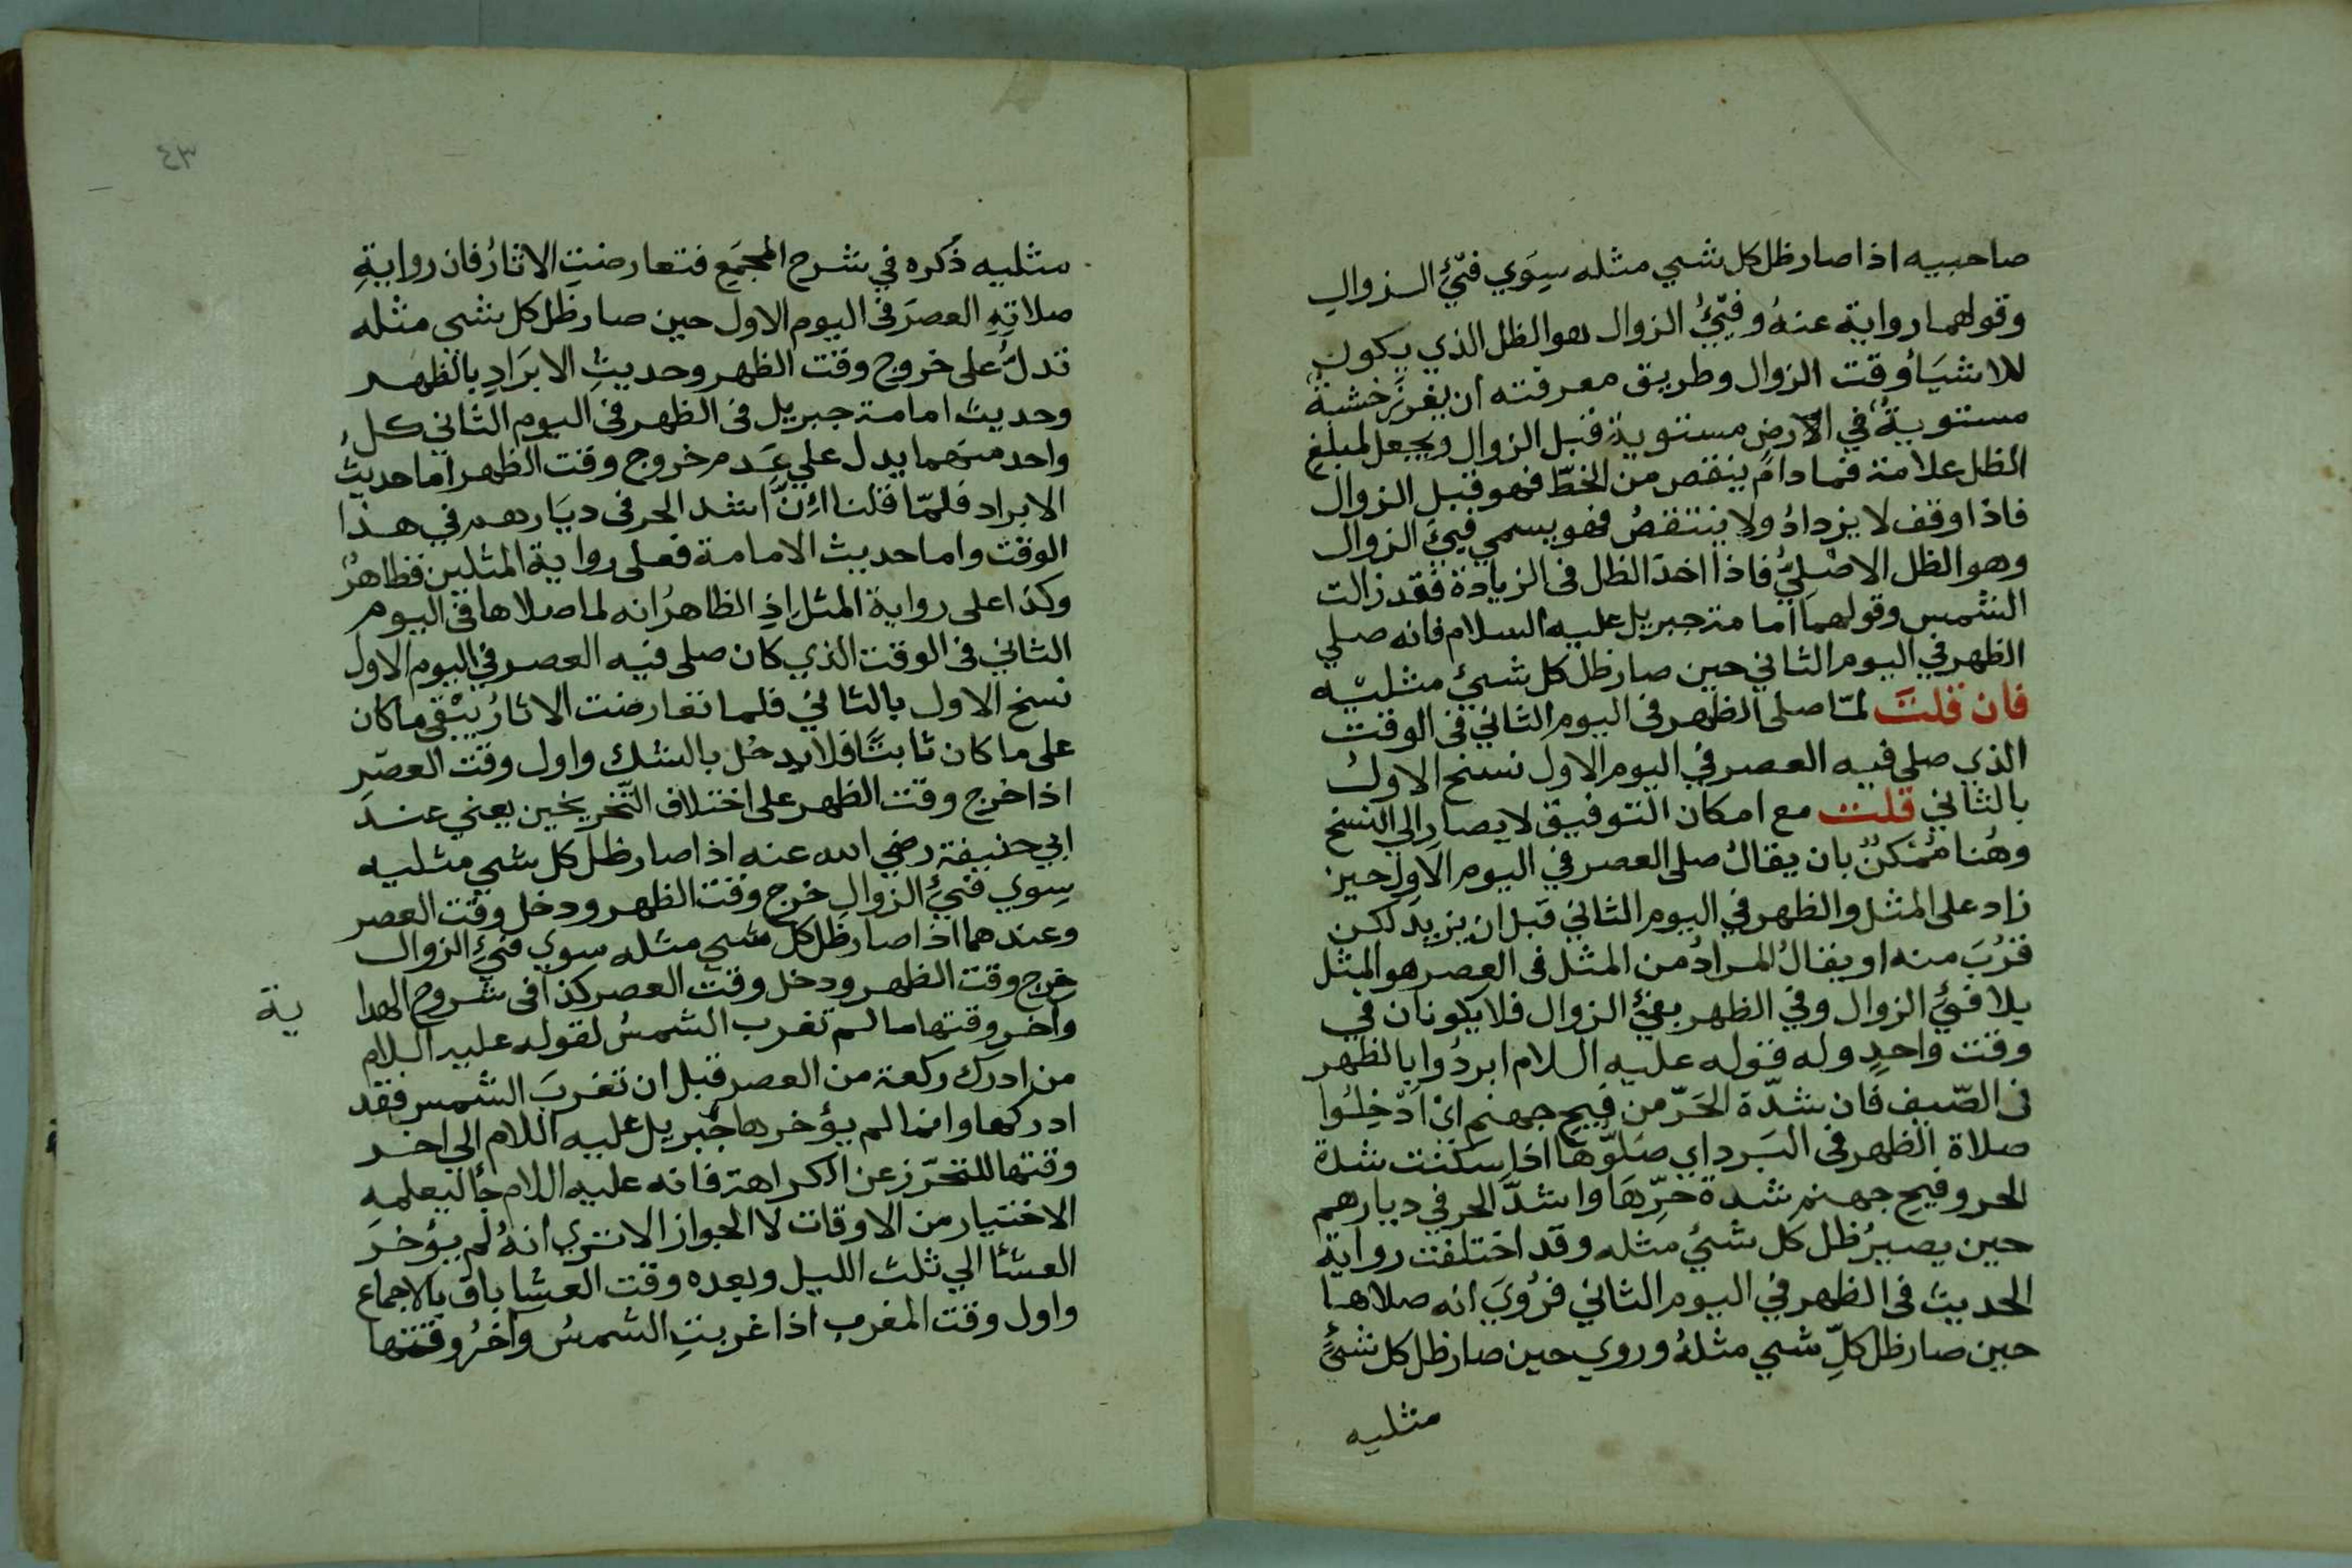 صاحبيه اذا صار ظل كل شي مثله سِوَي فيّئِ الزوالِ
وقولهما رواية عنهُ وفيّئُ الزوال هو الظل الذي يكون
للاشيَأ وقت الزوال وطريق معرفته ان يغرزَ خشبةً
مستويةً في الارضِ مستويةٍ قبل الزوال ويجعل لمبلغ
الظل علامة فما دام ينقص من الخطّ فهو قبل الزوال
فاذا وقف لا يزدادُ ولا ينتقصُ فهو يسمي فيئَ الزوال
وهو الظل الاصْليُّ فاذا اخذ الظل فى الزيادة فقد زالت
الشمس وقولهما امامة جبريل عليه السلام فانه صلي
الظهر في اليوم الثاني حين صار ظل كل شيئ مثليه
فان قلتَ لمّا صلى الظهر فى اليوم الثاني فى الوقت
الذي صلي فيه العصر في اليوم الاول نسخ الاولُ
بالثاني قلت مع امكان التوفيق لا يصار الي النسخ
وهُنا مُمْكنٌ بان يقالُ صلى العصر في اليوم الاول حين
زاد على المثل والظهر في اليوم الثاني قبل ان يزيدَ لكن
قرُبَ منه او يقالُ المرادُ من المثل فى العصر هو المثل
بلا فيَّ الزوال وفي الظهر بفيئ الزوال فلا يكونان في
وقت واحدٍ وله قوله عليه السلام ابردُوا بالظهر
فى الصّيف فان شدّة الحَرّ من فيح جهنم ايْ ادْخِلُوا
صلاة الظهر فى البَرد اي صَلّوها اذا سكنت شدة
الحر وفيح جهنم شدة حَرِّهَا واشدّ الحر في ديارهم
حين يصيرُ ظل كل شيئ مثله وقد اختلفت رواية
الحديث فى الظهر في اليوم الثاني فرُويَ انه صلاها
حين صار ظل كلِّ شي مثلهُ وروي حين صار ظل كل شيئٍ
مثليه
٤٣
مثليه ذُكره في شرح المجمَع فتعارضتِ الاثارُ فان روايةِ
صلاتِهِ العصرَ فى اليوم الاول حين صار ظل كل شي مثله
تدلُّ على خروج وقت الظهر وحديثِ الابرَادِ بالظهر
وحديث امامة جبريل فى الظهر فى اليوم الثاني كلُ
واحد منهما يدل علي عَدم خروج وقت الظهر اما حديث
الابراد فلمّا قلنا اِنَّ اشد الحر فى ديَارهم في هذا
الوقت واما حديث الامامة فعلى رواية المثلين فظاهرٌ
وكذا على رواية المثل اذِ الظاهرُ انه لما صلاها فى اليوم
الثاني فى الوقت الذي كان صلى فيه العصر في اليوم الاول
نسخ الاول بالثاني فلما تعارضت الاثارُ يَبْقى ما كان
على ما كان ثابتًا فلا يدخل بالشك واول وقت العصرِ
اذا خرج وقت الظهر على اختلاف التخريجين يعني عند
ابي حنيفة رضي الله عنه اذا صار ظل كل شي مثليه
سِوي فيئِ الزوالِ خرج وقت الظهر ودخل وقت العصر
وعندهما اذا صار ظل كل شي مثله سوي فيئِ الزوال
خرج وقت الظهر ودخل وقت العصر كذا فى شروح الهدا ية
وآخر وقتها ما لم تغرب الشمسُ لقوله عليه السلام
من ادرك ركعة من العصر قبل ان تغربَ الشمس فقد
ادركها وانما لم يؤخرها جبريل عليه اللام الي اخر
وقتها للتحرّز عن الكراهة فانه عليه اللام جأ ليعلمه
الاختيار من الاوقات لا الجواز الا تري انهُ لم يؤخر
العشأ الي ثلث الليل وبعده وقت العشا باق بالاجماع
واول وقت المغرب اذا غربتِ الشمسُ وآخرُ وقتها